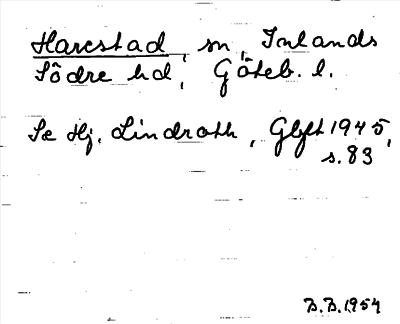 Harestad, sn, Inlands
Södre hd, Göteb. l.
Se Hj. Lindroth, Gbgft 1945,
s. 83
B.B. 1954